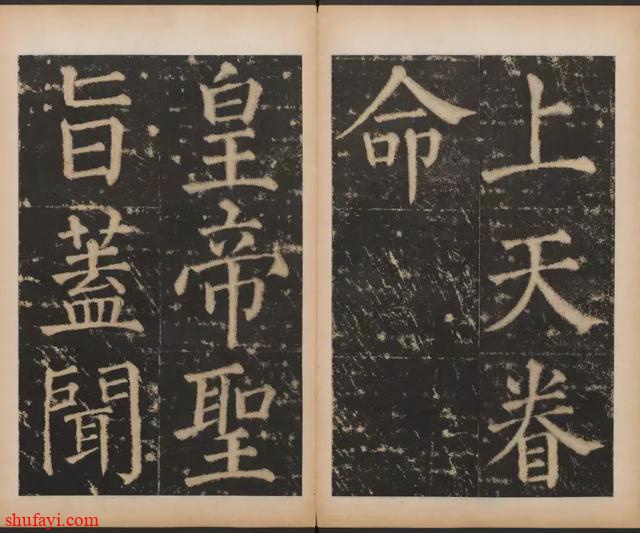 上天眷
命
皇帝聖
旨蓋聞
shufayi.com